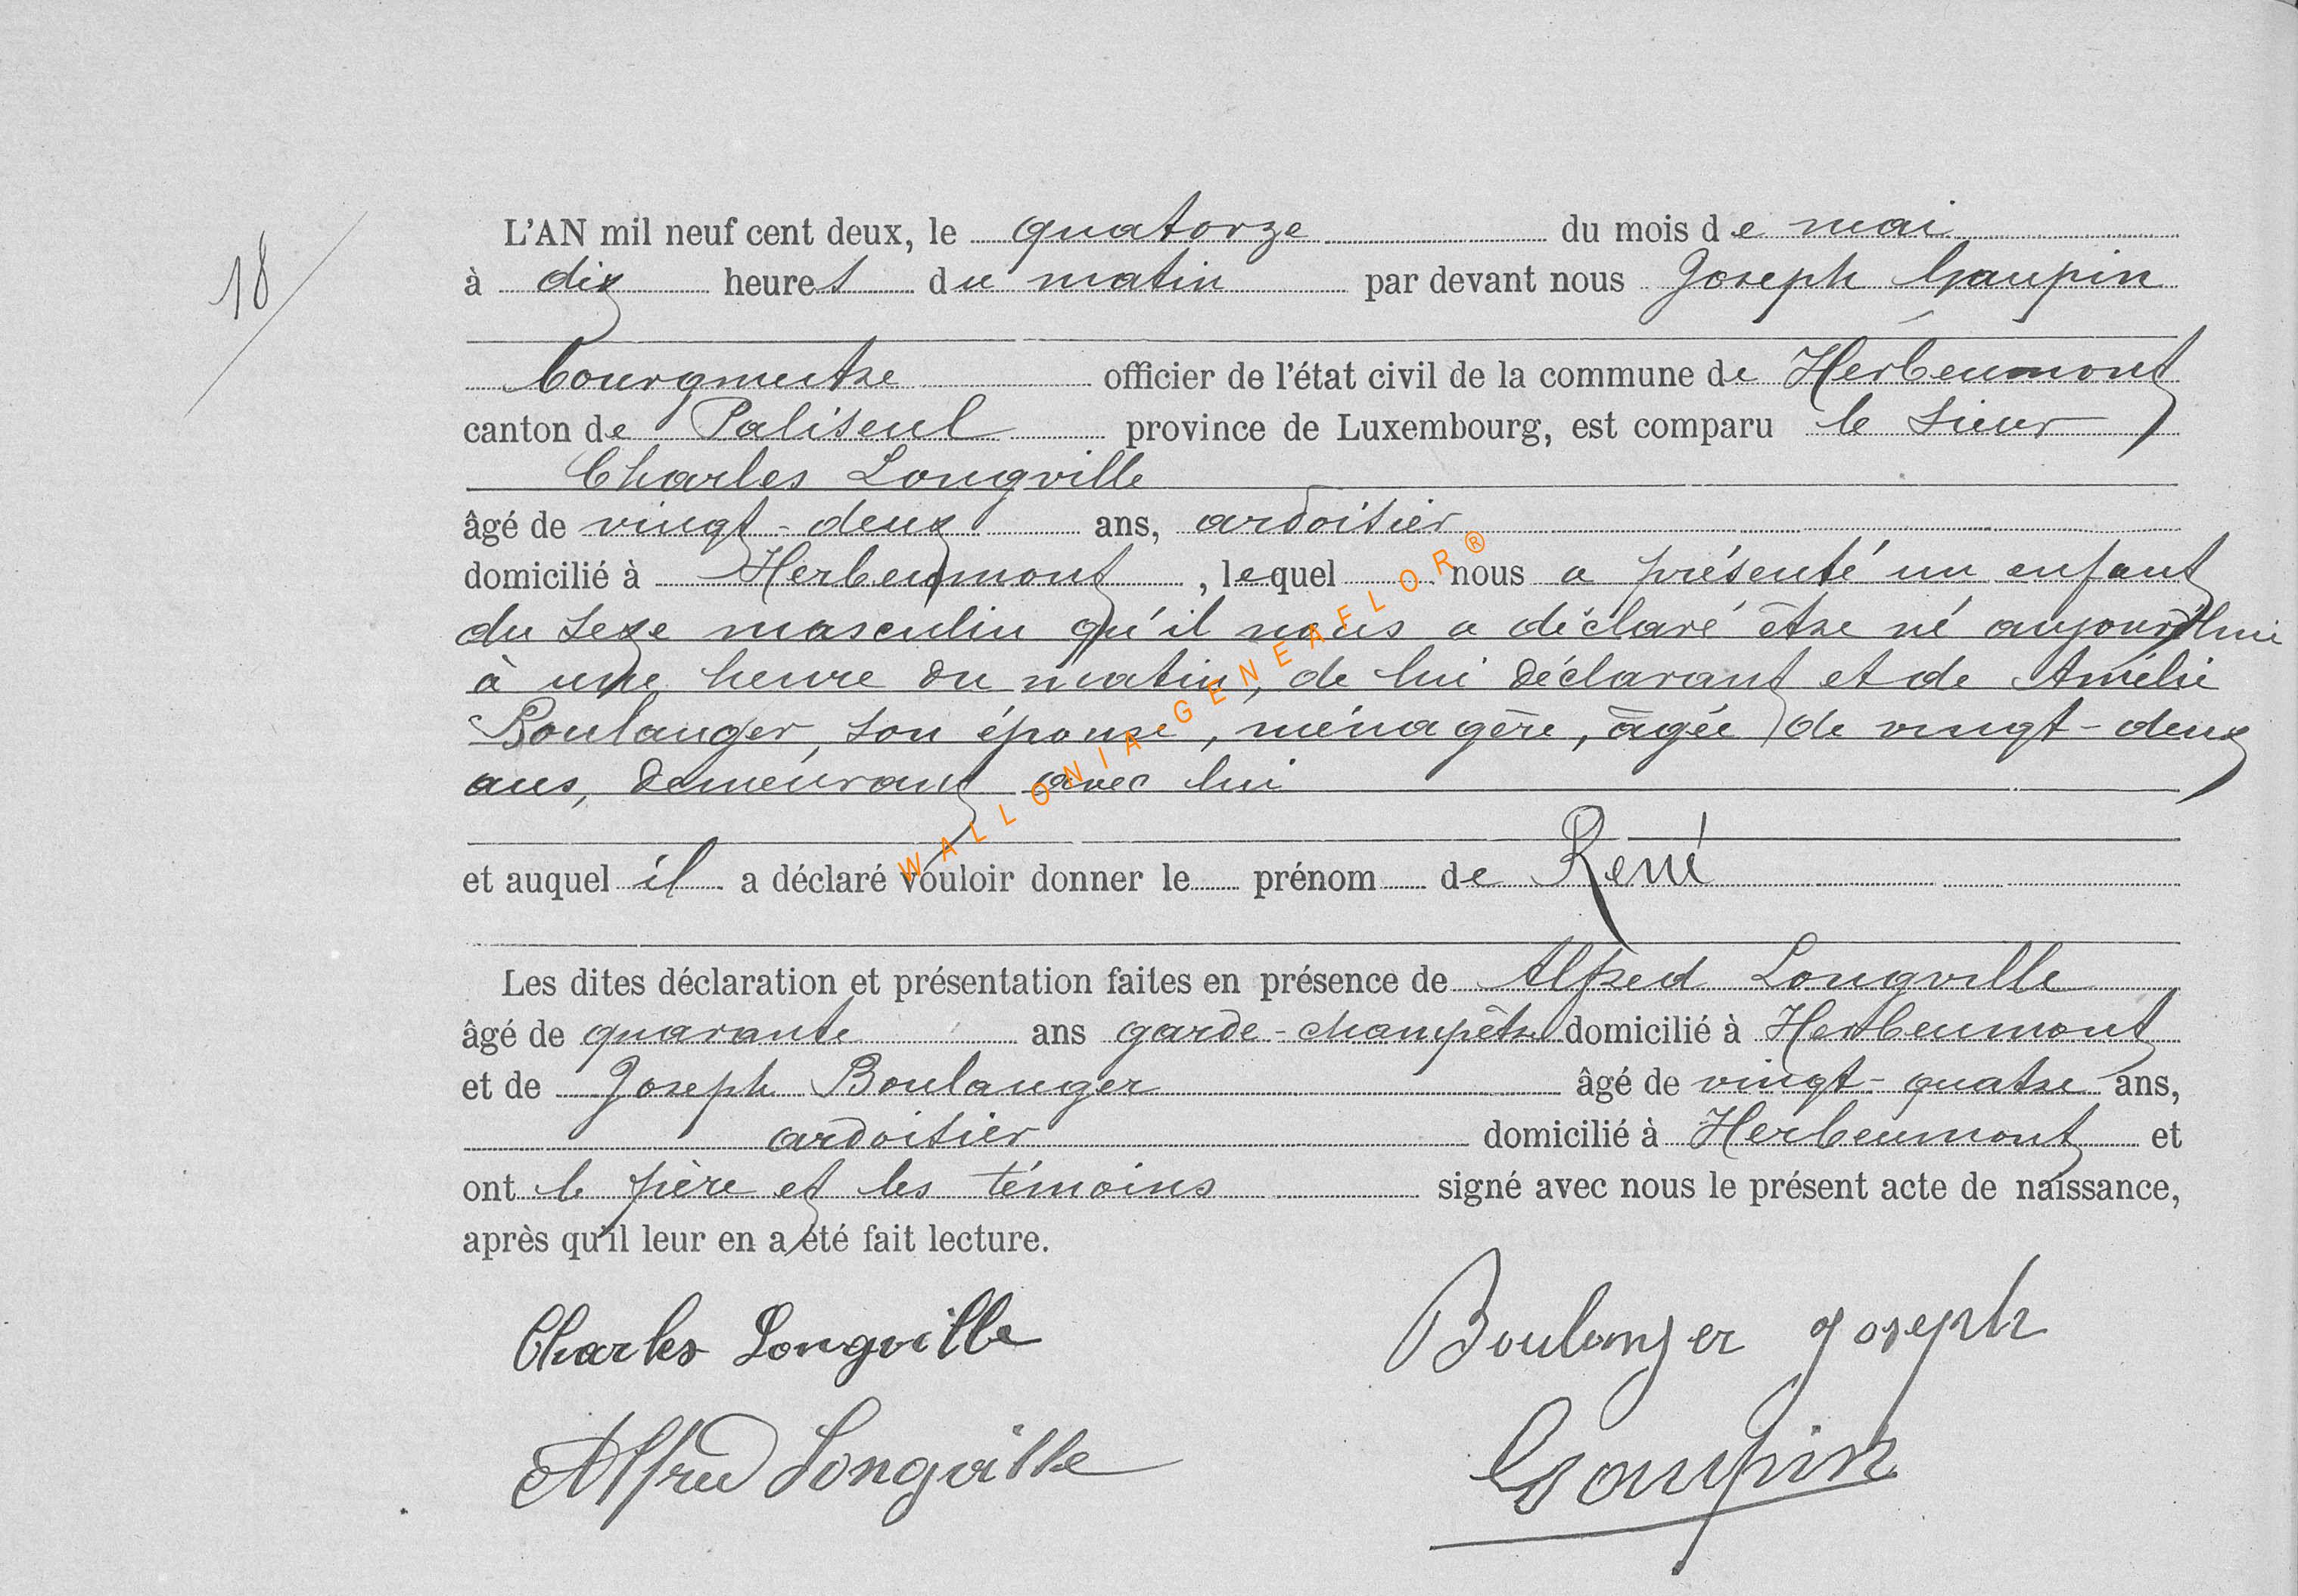 18
L'AN mil neuf cent deux, le quatorze du mois de mai
à dix heures du matin par devant nous Joseph Gaupin
bourgmestre officier de l'état civil de la commune de Herbeumont
canton de Paliseul province de Luxembourg, est comparu le sieur
Charles Longville
âgé de vingt-deux ans, ardoisier
domicilié à Herbeumont, lequel nous a présenté un enfant
du sexe masculin qu'il nous a déclaré être né aujourd'hui
à une heure du matin, de lui déclarant et de Amélie
Boulanger, son épouse, ménagère, âgée de vingt-deux
ans, demeurant avec lui
et auquel il a déclaré vouloir donner le prénom de René
Les dites déclaration et présentation faites en présence de Alfred Longville
âgé de quarante ans garde-champêtre domicilié à Herbeumont
et de Joseph Boulanger âgé de vingt-quatre ans,
ardoisier domicilié à Herbeumont et
ont le père et les témoins signé avec nous le présent acte de naissance,
après qu'il leur en a été fait lecture.
Charles Longville Boulanger Joseph
Alfred Longville Gaupin
WALLONIA-GENEAFLOR®